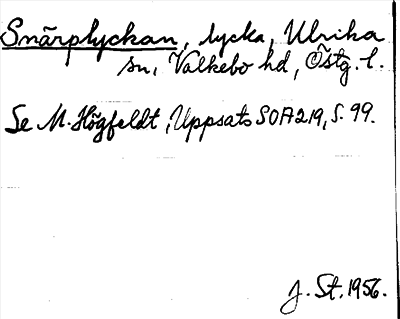 Snärplyckan, lycka, Ulrika
sn, Valkebo hd, Östg. l.
Se M. Högfeldt, Uppsats SOFI 219, S. 99.
J. St. 1956.